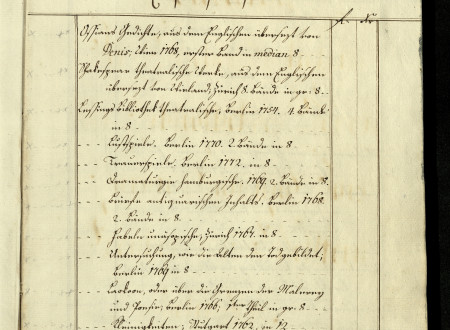 fl. Xr.
Ossians Gedichte, aus dem Englischen übersetzt von
Denis, Wien 1768, erster Band in median 8 -
Shakespear theatralische Werke, aus dem Englischen
übersezt von Wieland, Zürich 8. Bände in gr: 8 - -
Lessings Bibliothek theatralische, Berlin 1754. 4. Bände
in 8 - - -
- - Lustspiele. Berlin 1770. 2. Bände in 8 - - -
- - Trauerspiele. Berlin 1772. in 8 - - -
- - Dramaturgie hamburgische. 1769. 2. Bände in 8.
- - Briefe antiquarischen Inhalts. Berlin 1768.
2. Bände in 8 - - -
- - Fabeln Zürich 1767. in 8 - -
- - Untersuchung, wie die Alten den Tod gebildet;
Berlin 1769 in 8 - - -
- - Laokoon, oder über die Grenzen der Malerey
und Poesie, Berlin 1766; 1ter Theil in gr: 8 - -
- - Kleinigkeiten, Stutgart 1762. in 12